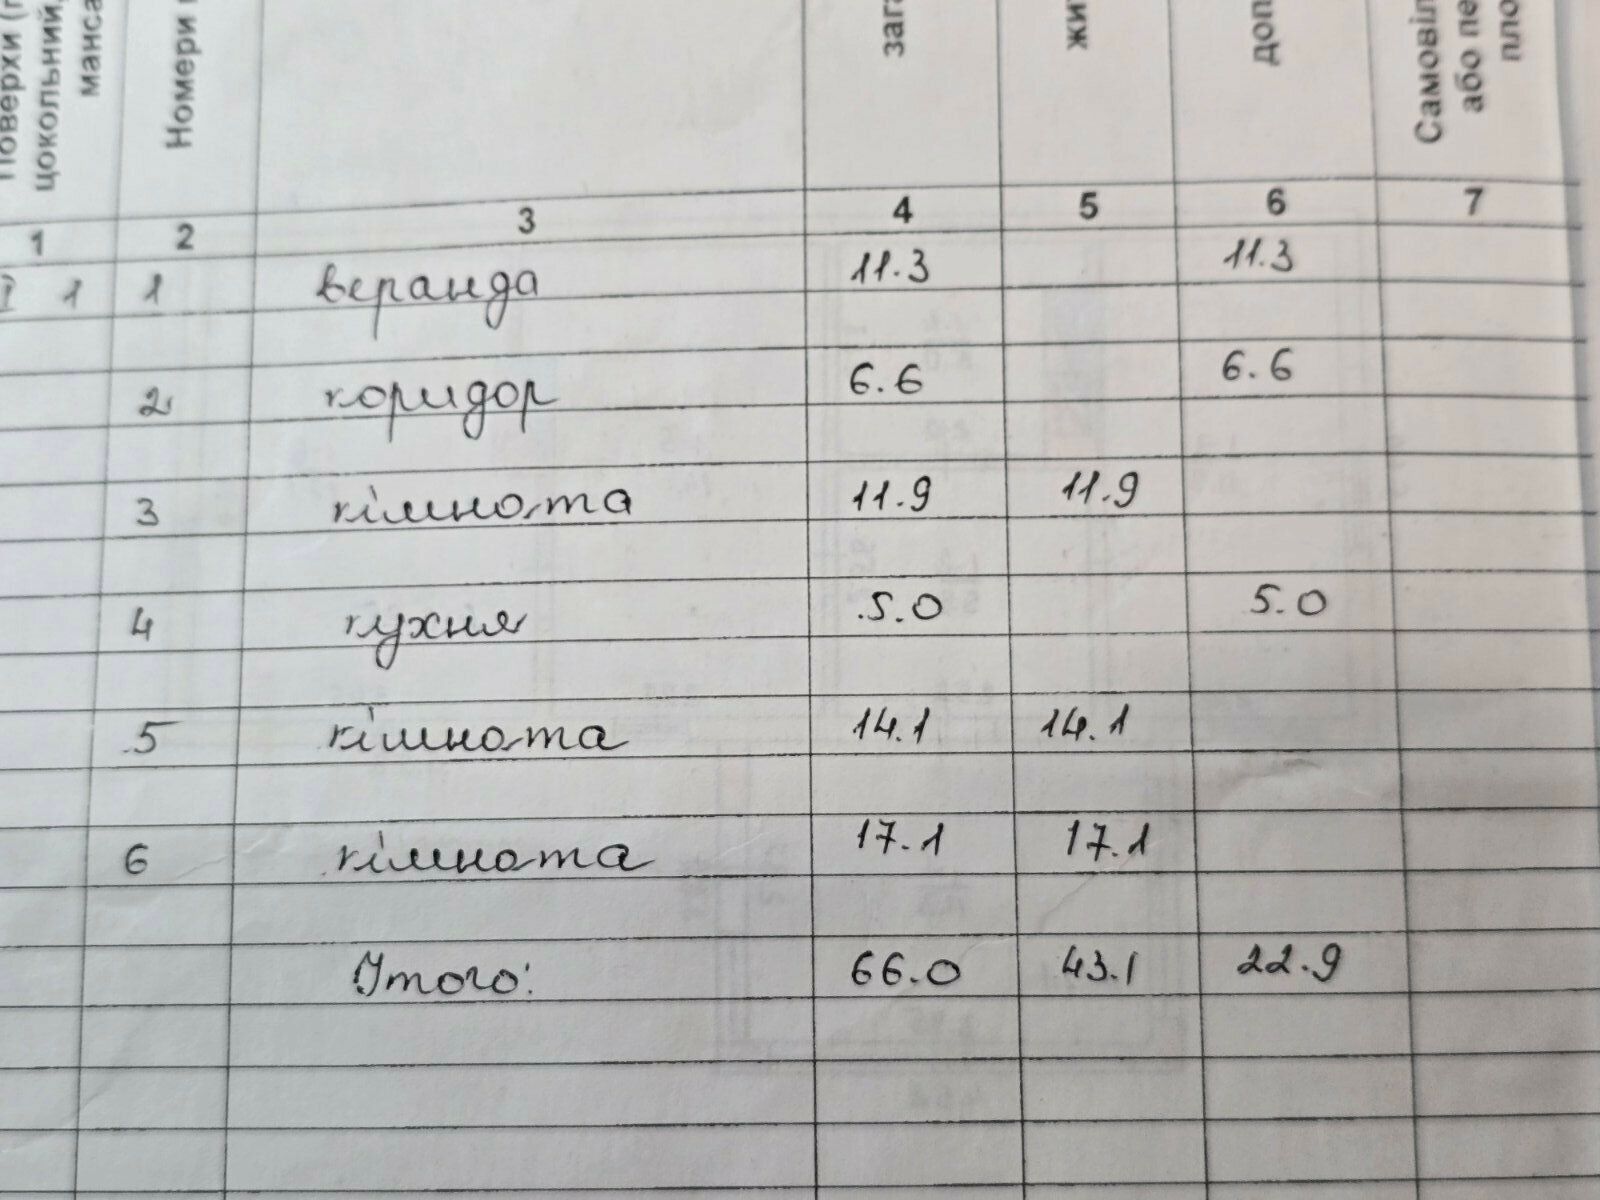 Поверхи (
цокольний,
манса
Номери
зага
жит
доп
Самовіл
або пе
пло
1 2 3 4 5 6 7
І 1 1 веранда 11.3 11.3
2 коридор 6.6 6.6
3 кімната 11.9 11.9
4 кухня 5.0 5.0
5 кімната 14.1 14.1
6 кімната 17.1 17.1
Итого: 66.0 43.1 22.9